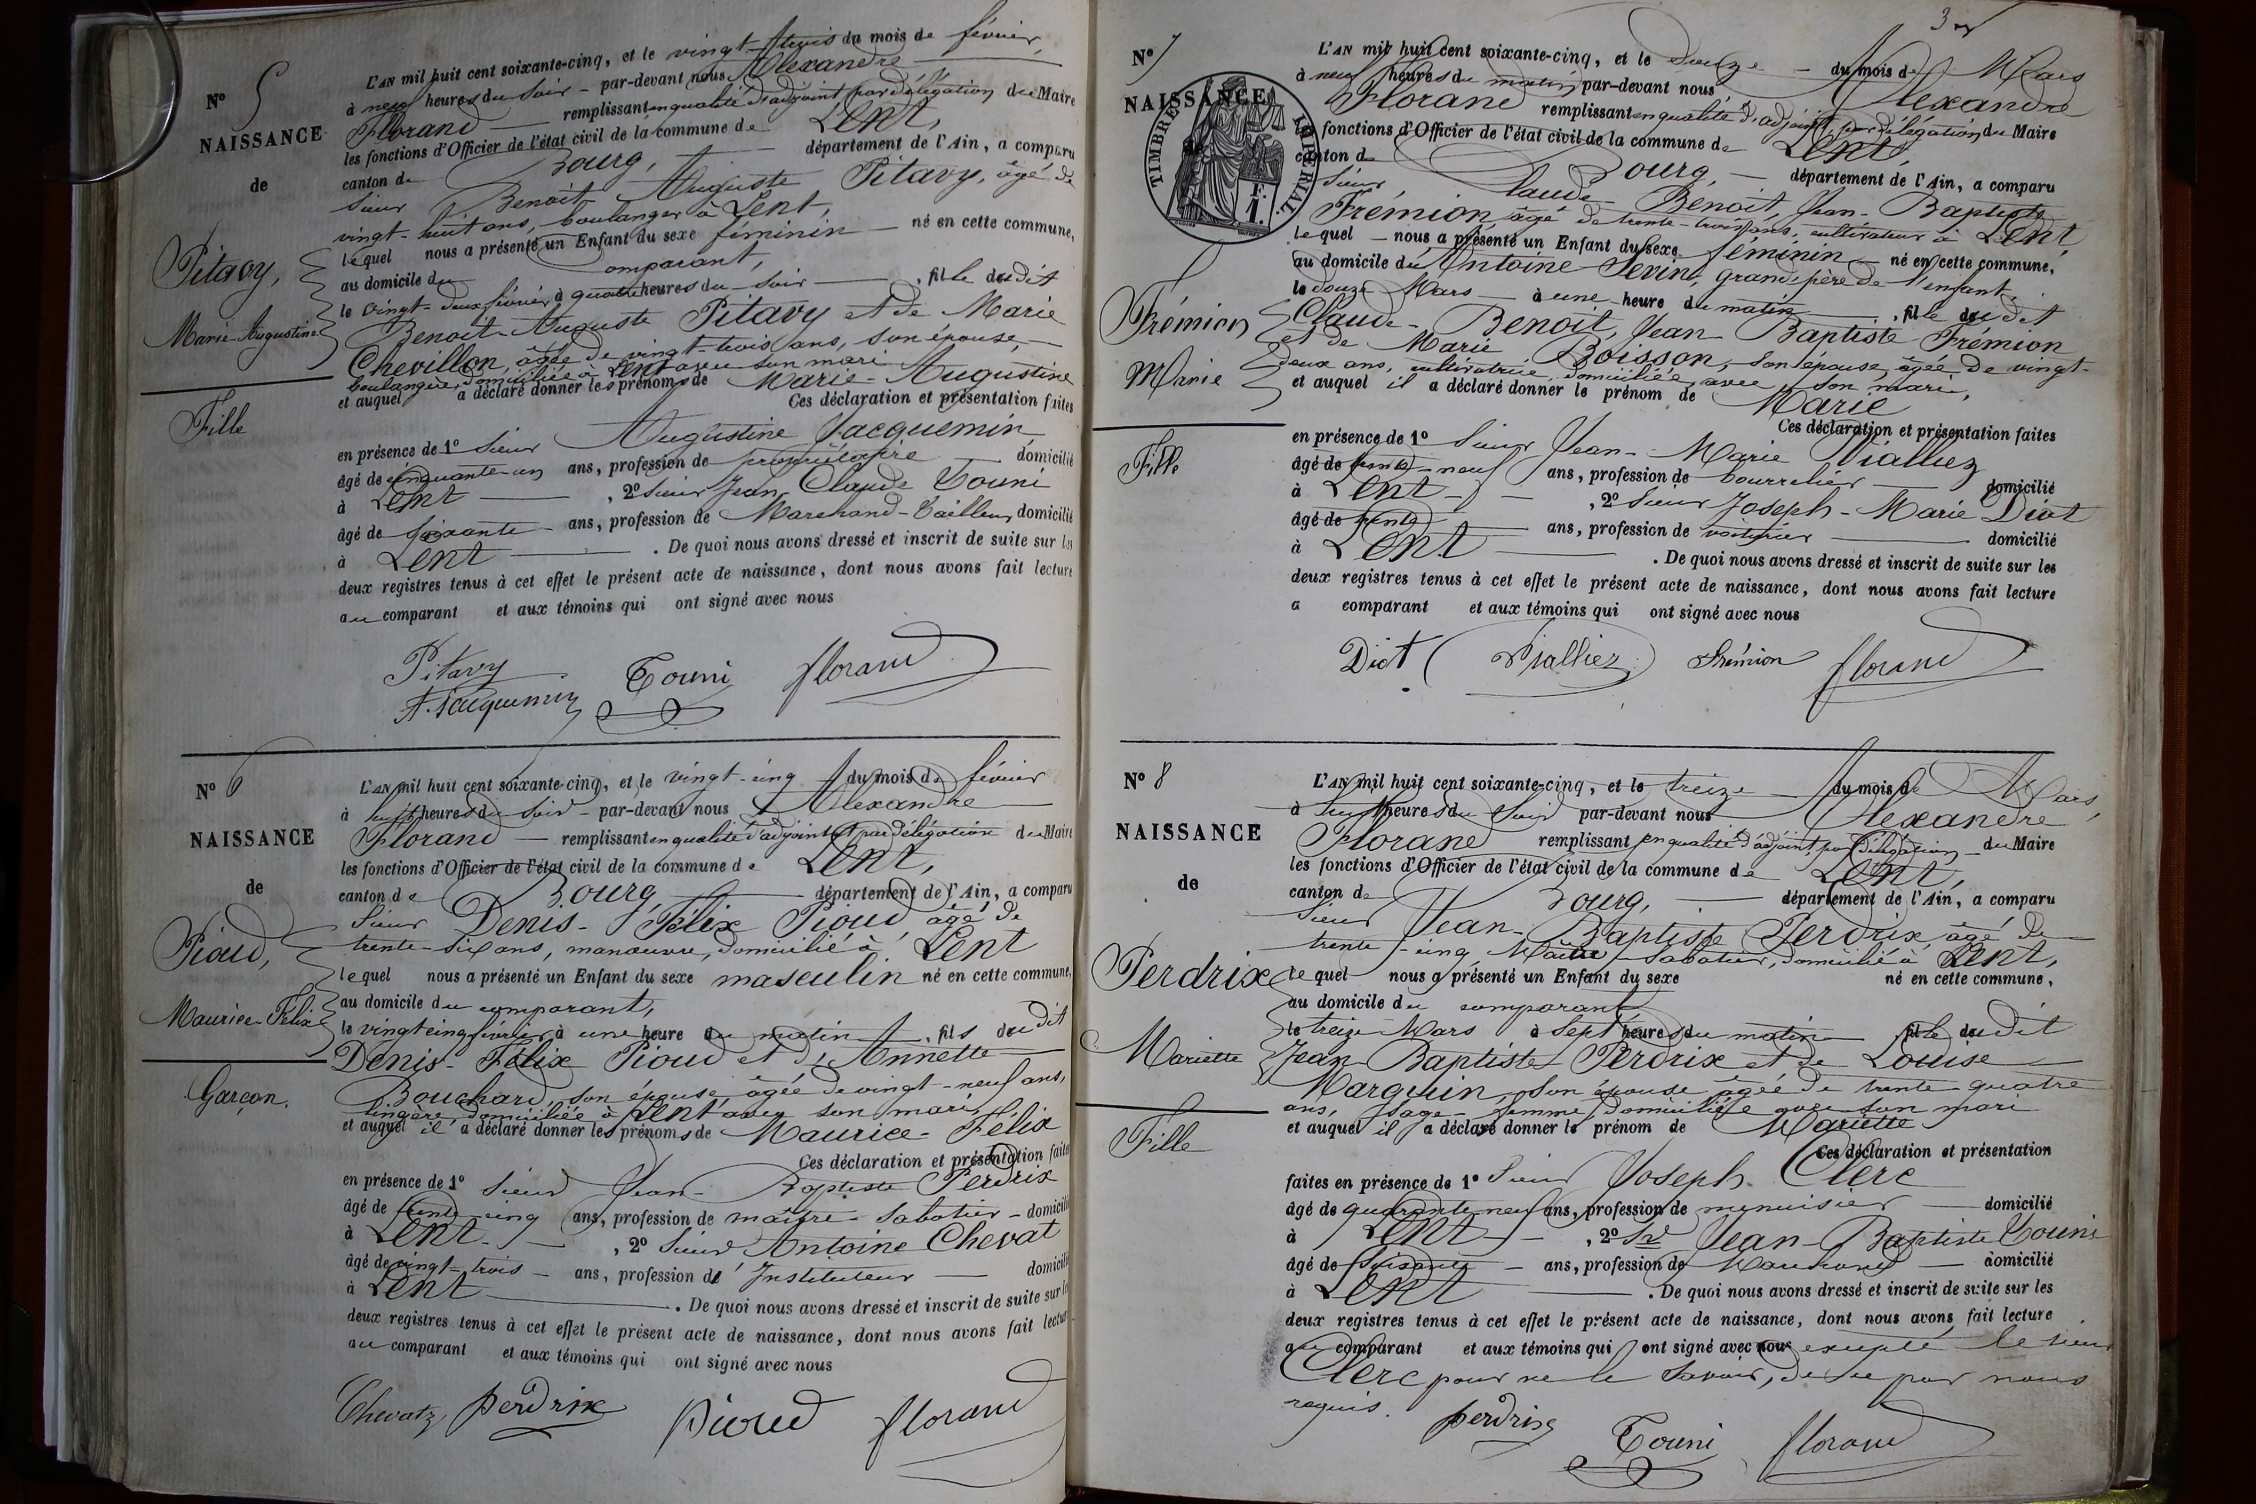 N° 5
NAISSANCE
de
Pitavy,
Marie-Augustine
Fille
L'AN mil huit cent soixante-cinq, et le vingt-trois du mois de février,
à neuf heures du soir - par-devant nous Alexandre
Florand remplissant en qualité d'adjoint par délégation du Maire
les fonctions d'Officier de l'état civil de la commune de Lent,
canton de Bourg, département de l'Ain, a comparu
Sieur Benoit Auguste Pitavy, âgé de
vingt-huit ans, boulanger à Lent,
lequel nous a présenté un Enfant du sexe féminin né en cette commune,
au domicile du comparant,
le vingt-deux février à quatre heures du soir, fille du dit
Benoit-Auguste Pitavy et de Marie
Chevillon, âgée de vingt-trois ans, son épouse,
boulangère, domiciliée à Lent avec son mari
et auquel a déclaré donner les prénoms de Marie-Augustine
Ces déclaration et présentation faites
en présence de 1° Sieur Augustine Jacquemin
âgé de cinquante-un ans, profession de propriétaire domicilié
à Lent, 2° Sieur Jean Claude Touni
âgé de soixante ans, profession de Marchand-Tailleur domicilié
à Lent. De quoi nous avons dressé et inscrit de suite sur les
deux registres tenus à cet effet le présent acte de naissance, dont nous avons fait lecture
au comparant et aux témoins qui ont signé avec nous
Pitavy
A. Jacquemin Touni florand
N° 6
NAISSANCE
de
Pioud,
Maurice-Félix
Garçon.
L'AN mil huit cent soixante-cinq, et le vingt-cinq du mois de février
à huit heures du soir - par-devant nous Alexandre
Florand remplissant en qualité d'adjoint et par délégation du Maire
les fonctions d'Officier de l'état civil de la commune de Lent,
canton de Bourg département de l'Ain, a comparu
Sieur Denis-Félix Pioud, âgé de
trente-six ans, manœuvre, domicilié à Lent
lequel nous a présenté un Enfant du sexe masculin né en cette commune,
au domicile du comparant,
le vingt cinq février à une heure du matin, fils du dit
Denis-Félix Pioud et d'Annette
Bouchard, son épouse âgée de vingt-neuf ans,
lingère domiciliée à Lent avec son mari,
et auquel il a déclaré donner les prénoms de Maurice-Félix
Ces déclaration et présentation faites
en présence de 1° Sieur Jean-Baptiste Perdrix
âgé de trente-cinq ans, profession de maître-sabotier - domicilié
à Lent, 2° Sieur Antoine Chevat
âgé de vingt-trois ans, profession d'Instituteur domicilié
à Lent. De quoi nous avons dressé et inscrit de suite sur les
deux registres tenus à cet effet le présent acte de naissance, dont nous avons fait lecture
au comparant et aux témoins qui ont signé avec nous
Perdrix Pioud florand
3
N° 7
NAISSANCE
TIMBRE IMPÉRIAL
Frémion
Marie
Fille
L'AN mil huit cent soixante-cinq, et le douze du mois de Mars
à neuf heures du matin par-devant nous Alexandre
Florand remplissant en qualité d'adjoint par délégation du Maire
les fonctions d'Officier de l'état civil de la commune de Lent,
canton de Bourg, département de l'Ain, a comparu
Sieur Claude-Benoit, Jean-Baptiste
Frémion, âgé de trente-trois ans, cultivateur à Lent
lequel nous a présenté un Enfant du sexe féminin né en cette commune,
au domicile du Antoine grand-père de l'enfant,
le douze Mars à une heure du matin, fille du dit
Claude-Benoit, Jean-Baptiste Frémion
et de Marie Boisson, son épouse, âgée de vingt-
deux ans, cultivatrice, domiciliée avec son mari,
et auquel il a déclaré donner le prénom de Marie
Ces déclaration et présentation faites
en présence de 1° Sieur Jean-Marie Vialliez
âgé de trente-neuf ans, profession de bourrelier domicilié
à Lent, 2° Sieur Joseph-Marie Diot
âgé de trente ans, profession de voiturier domicilié
à Lent. De quoi nous avons dressé et inscrit de suite sur les
deux registres tenus à cet effet le présent acte de naissance, dont nous avons fait lecture
a comparant et aux témoins qui ont signé avec nous
Diot Vialliez Frémion florand
N° 8
NAISSANCE
de
Perdrix
Mariette
Fille
L'AN mil huit cent soixante-cinq, et le treize du mois de Mars,
à huit heures du soir par-devant nous Alexandre
Florand remplissant en qualité d'adjoint, par délégation du Maire
les fonctions d'Officier de l'état civil de la commune de Lent,
canton de Bourg, département de l'Ain, a comparu
Sieur Jean-Baptiste Perdrix âgé de
trente-cinq, Maître sabotier, domicilié à Lent,
lequel nous a présenté un Enfant du sexe né en cette commune,
au domicile du comparant
le treize Mars à sept heures du matin fille du dit
Jean-Baptiste Perdrix et de Louise
Marguin, son épouse âgée de trente-quatre
ans, sage-femme, domiciliée avec son mari
et auquel il a déclaré donner le prénom de Mariette
Ces déclaration et présentation
faites en présence de 1° Sieur Joseph Clerc
âgé de quarante neuf ans, profession de menuisier domicilié
à Lent, 2° Sr Jean-Baptiste Touni
âgé de soixante ans, profession de Marchand domicilié
à Lent. De quoi nous avons dressé et inscrit de suite sur les
deux registres tenus à cet effet le présent acte de naissance, dont nous avons fait lecture
au comparant et aux témoins qui ont signé avec nous excepté le sieur
Clerc pour ne le savoir, de ce par nous
requis.
perdrix Touni florand